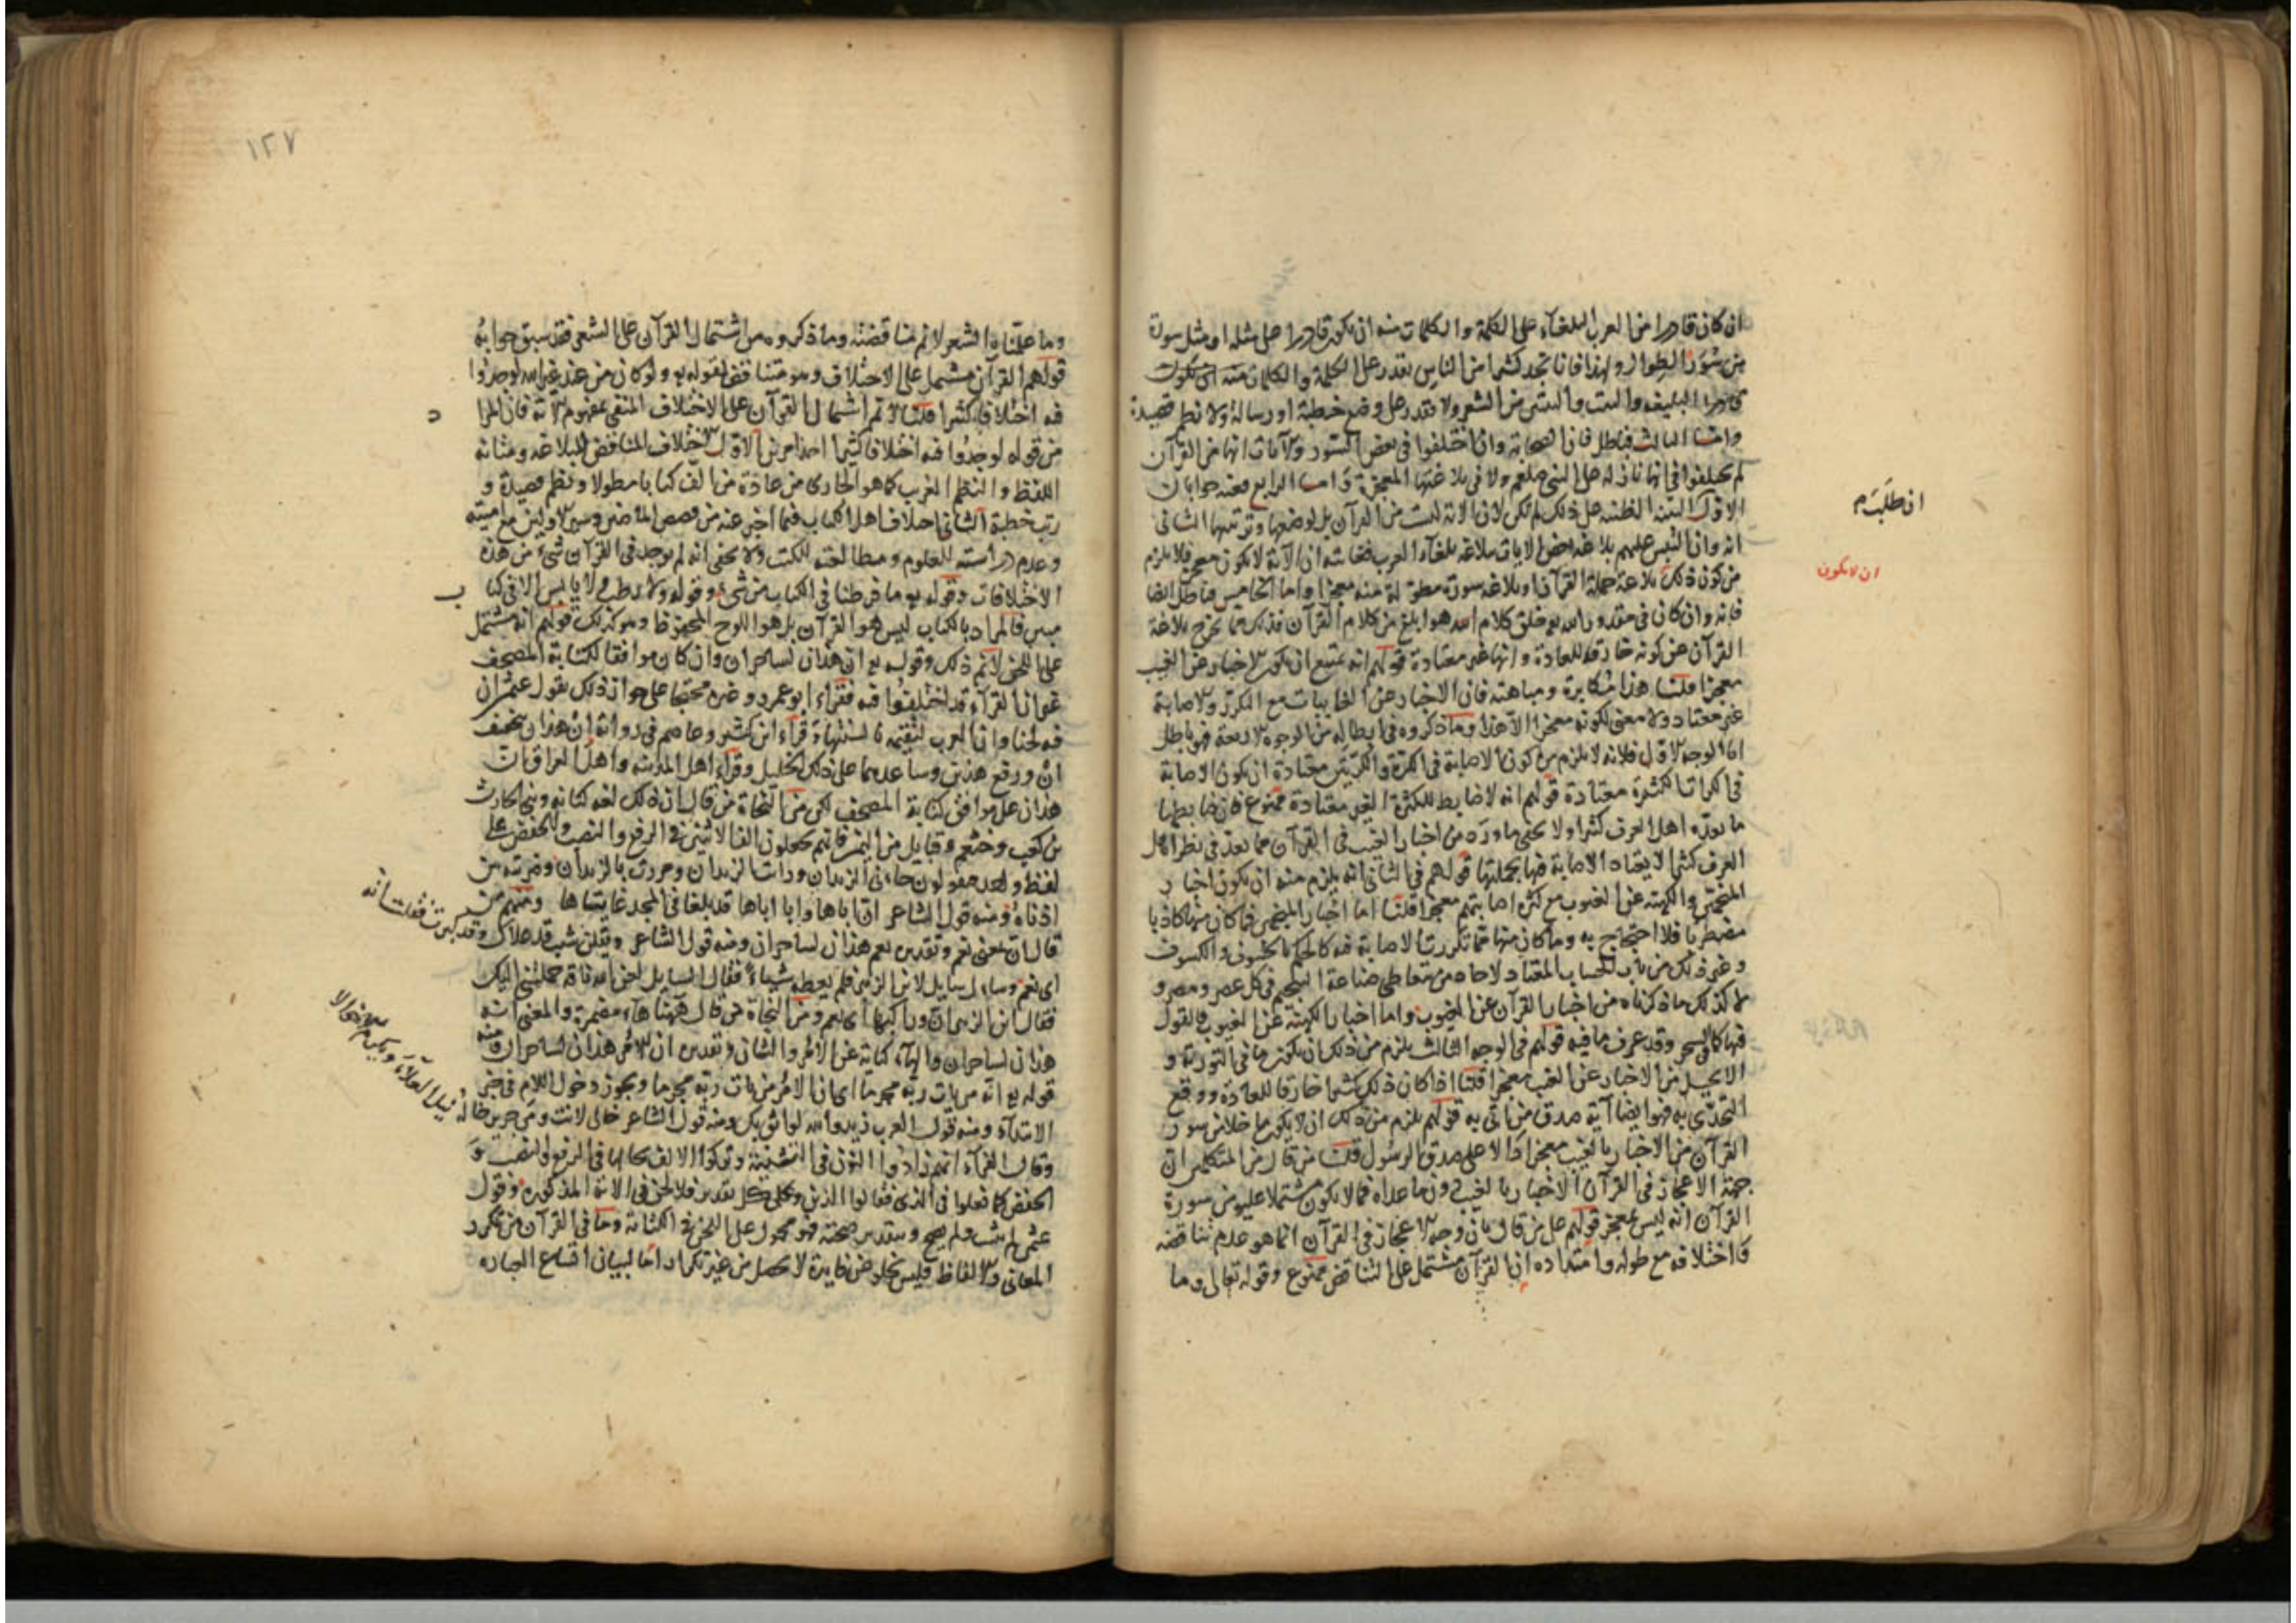 ان كان قادرا من العرب البلغآء على الكلمة والكلمات منه ان يكون قادرا على مثله او مثل سورة
من سُوَر الطوال ولهذا فانا نجد كثيرا من الناس يقدر على الكلمة والكلمات منه
البليغة والبيت والبيتين من الشعر ولا يقدر على وضع خطبة او رسالة ولا نظم قصيدة
وامـا الثالث فباطل فان الصحابة وان اختلفوا فى بعض السور والآيات انها من القرآن
لم يختلفوا فى انها نازلة على النبى صلعم ولا فى بلاغتها المعجزة وامـا الرابع فعنه جوابان
الاول البينة الظنية على ذلك لم تكن لان الآية ليست من القرآن بل لوضعها وترتيبها الثانى
انه وان التبس عليهم بلاغة بعض الايات ببلاغة بلغآء العرب فغايته ان الآية لا تكون معجزة فلا يلزم
من كون ذلك بلاغة جملة القرآن او بلاغة سورة مطولة منه معجزا واما الخامس فباطل ايضا
فانه وان كان فى مقدور الله يع خلق كلام هو ابلغ من كلام القرآن فذلك مما لا يخرج بلاغة
القرآن عن كونه خارقة للعادة وانها غير معتادة قولهم انه يمتنع ان يكون الاخبار عن الغيب
معجزا قلنـا هذا مكابرة ومباهتة فان الاخبار عن الغايبات مع التكرر والاصابة
غير معتاد ولا معنى لكونه معجزا الا هذا وما ذكروه فى ابطاله من الوجوه الاربعة فهو باطل
اما الوجه الاول فلانه لا يلزم من كون الاصابة فى الكرة والكرتين معتادة ان يكون الاصابة
فى الكرات الكثيرة معتادة قولهم انه لا ضابط للكثرة الغير معتادة ممنوع فان ضابطها
ما يعدّه اهل العرف كثيرا ولا يخفى ما ورد من اخبار الغيب فى القرآن مما يعدّ فى نظر اهل
العرف كثيرا لا يعتاد الاصابة فيها بجملتها قولهم فى الثانى انه يلزم منه ان يكون اخبار
المنجمين والكهنة عن الغيوب مع كثرة اصابتهم معجزا قلنا اما اخبار المنجمين فما كان منها كاذبا
مضطربا فلا احتجاج به وما كان منها مما تكررت الاصابة فيه كالحكم بالخسوف والكسوف
وغير ذلك من باب الحساب المعتاد لاحاد من يتعاطى صناعة التنجيم فى كل عصر ومصر و
لا كذلك ما ذكرناه من اخبار القرآن عن الغيوب واما اخبار الكهنة عن الغيوب فالقول
فيها كالسحر وقد عرف ما فيه قولهم فى الوجه الثالث يلزم من ذلك ان يكون ما فى التورية و
الانجيل من الاخبار عن الغيب معجزا قلنا اذا كان ذلك كثيرا خارقا للعادة ووقع
التحدّى به فهو ايضا آية صدق من اتى به قولهم يلزم من ذلك ان لا يكون ما خلا من سور
القرآن من الاخبار بالغيب معجزا دالا على صدق الرسُول قلنـا من قال من المتكلمين ان
جهة الاعجاز فى القرآن الاخبار بالغيب دون ما عداه فما لا يكون مشتملا عليه من سورة
القرآن انه ليس بمعجز قولهم على من قال بان وجه الاعجاز فى القرآن انما هو عدم تناقضه
واختلافه مع طوله وامتداده ان القرآن مشتمل على التناقض ممنوع وقوله تعالى وما
ان طلَبَت م
ان لا يكون
١٢٧
وما علّمناه الشعر لا نم مناقضته وما ذكروه من اشتمال القرآن على الشعر فقد سبق جوابهُ
قولهم القرآن مشتمل على الاختلاف وهو مناقض لقوله يع ولو كان من عند غير الله لوجدوا
فيه اختلافا كثيرا قلنـا لا نم اشتمال القرآن على الاختلاف المنفى بمفهوم الآية فان المراد
من قوله لوجدُوا فيه اختلافا كثيرا احد امرين الاول الاختلاف المناقض للبلاغة ومثانة
اللفظ والنظم الغريب كما هو الجارى من عادة من الّف كتابا مطولا ونظم قصيدة و
رتب خطبة الثانى اختلاف اهل الكتاب فيما اخبر عنه من قصص الماضين وسير الاولين مع اميته
وعدم دراسته للعلوم ومطالعته للكتب ولا يخفى انه لم يوجد فى القرآن شىء من هذه
الاختلافات وقوله يع ما فرطنا فى الكتاب من شىء وقوله ولا رطب ولا يابس الا فى كتا
مبين فالمراد بالكتاب ليس هو القرآن بل هو اللوح المحفوظ وهو كذلك قولهم انه مشتمل
على اللحن لا نم ذلك وقوله يع ان هذان لساحران وان كان موافقا لكتابة المصحف
غير ان القرآء قد اختلفوا فيه فقراء ابو عمرو وغيره محتجا على جواز ذلك بقول عثمن ان
فيه لحنا وان العرب لتقيمه بالسنتها وقراء ابن كثير وعاصم فى رواية ان هذان بتخفيف
ان ورفع هذين وساعدهما على ذلك الخليل وقراء اهل المدينة واهل العراق ان
هذان على موافق كتابة المصحف لكن من النحاة من قال ان ذلك لغة كنانة وبنى الحارث
بن كعب وخثعم وقبايل من اليمن فانهم يجعلون الف الاثنين فى الرفع والنصب والخفض على
لفظ واحد فيقولون جاءنى الزيدان ورايت الزيدان ومررت بالزيدان وضربته بين
اذناهُ ومنه قول الشاعر ان اباها وابا اباها قد بلغا فى المجد غايتاها ومنهم من
قال ان بمعنى نعم وتقديره نعم هذان لساحران ومنه قول الشاعر ويقلن شيب قد علاك وقد كبرت فقلت انّه
اى نعم وسال سايل لابن الزبير فلم يعطه شياءً فقال السايل لعن الله ناقة حملتنى اليك
فقال ابن الزبير ان وراكبها اى نعم ومن النحاة من قال ههنا هاء مضمرة والمعنى انه
هذان لساحران والهآء كناية عن الامر والشان وتقديره ان الامر هذان لساحران ومنه
قوله يع انه من يات ربّه مجرما اى ان الامر من يات ربّه مجرما ويجوز دخول اللام فى خبر
الابتدآء ومنه قول العرب زيد والله لواثق بك ومنه قول الشاعر خالى لانت ومن جرير خاله ينل العلاَء ويكرم الاخوالا
وقال الفرآء انهم زادوا النون فى التثنية وتركوا الالف بحالها فى الرفع والنصب و
الخفض كما فعلوا فى الذى فقالوا الذين وعلى كل تقدير فلا لحن فى الاية المذكورة وقول
عثمن لم يثبت ولم يصح وبتقدير صحته فهو محمول على اللحن فى الكتابة وما فى القرآن من تكرر
المعانى والالفاظ فليس يخلو عن فايدة لا تحصل من غير تكرار اما لبيان اتساع العبارة